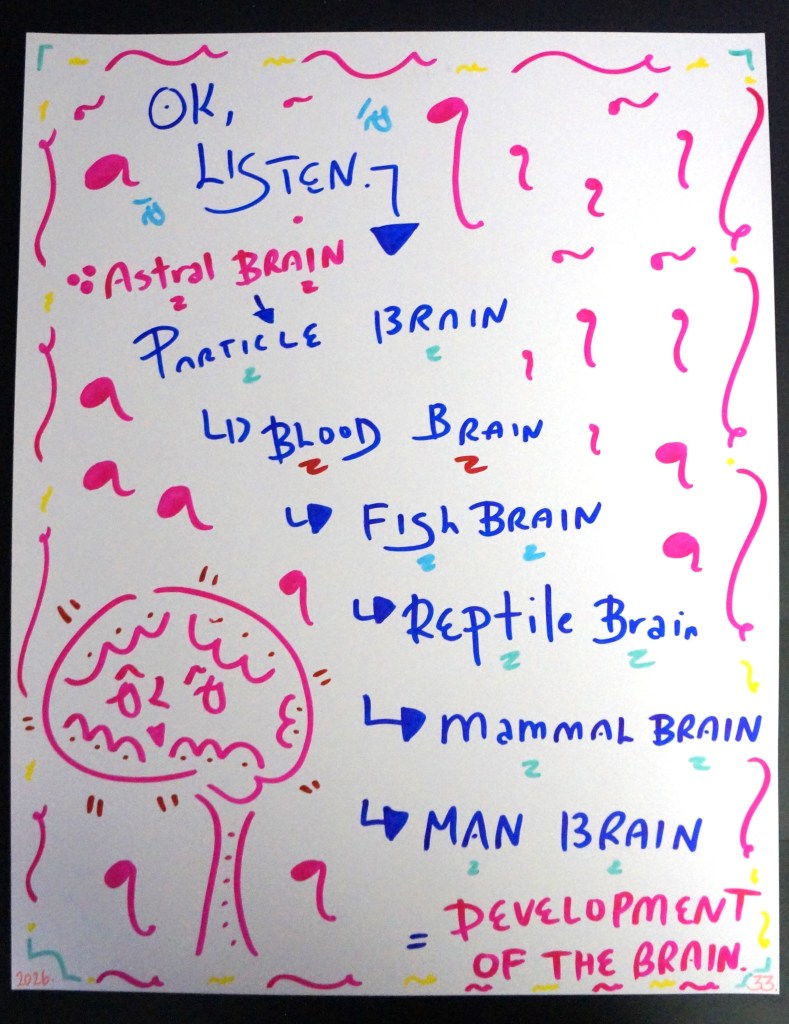 OK,
LISTEN.
Astral BRAIN
PARTICLE BRAIN
BLOOD BRAIN
FISh BRAIN
REptile Brain
mammAL BRAIN
MAN BRAIN
= DEVELOPMENT
OF THE BRAIN.
2026. 33.